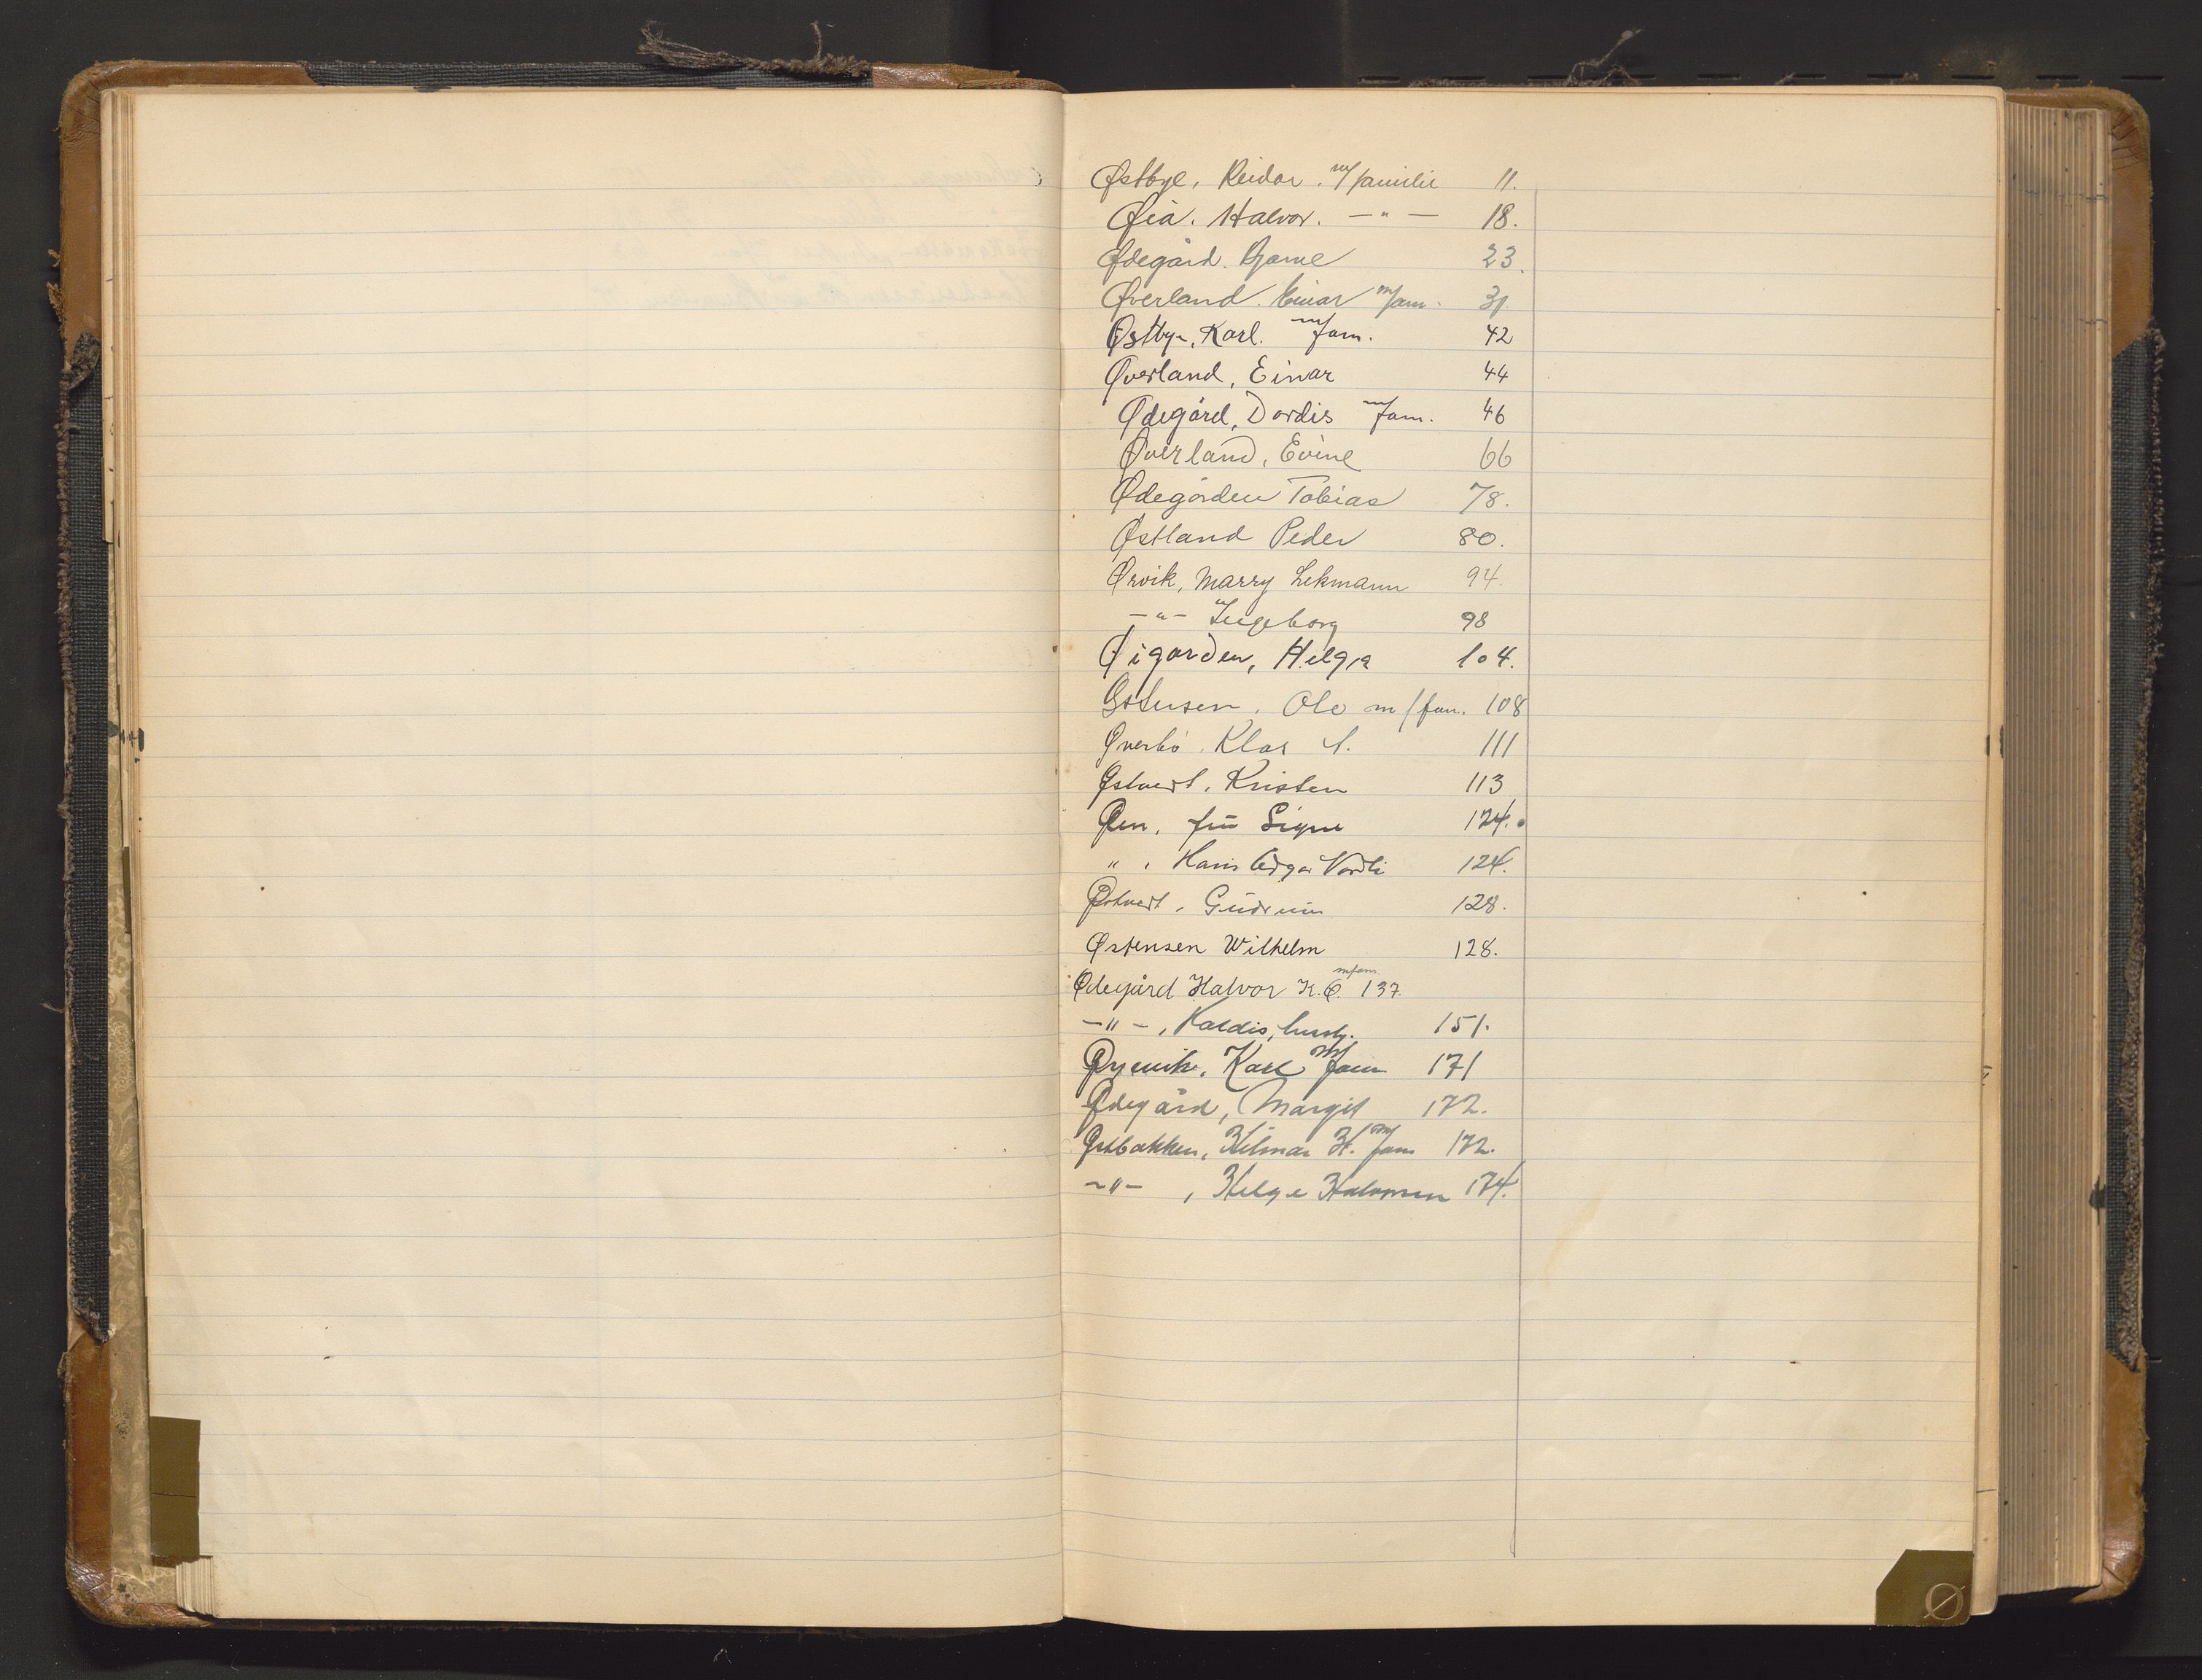 Østbye, Reidar. m/familie 11.
Øia. Halvor. — " — 18.
Ødegård. Bjarne 23.
Øverland. Einar m/fam. 31
Østbye, Karl. m/fam. 42
Øverland, Einar 44
Ødegård, Dordis m/fam. 46
Øverland, Evine 66
Ødegården Tobias 78.
Østland Peder 80.
Ørvik, Marry Lekmann 94.
— " — Ingeborg 98
Øigarden, Helga 104.
Østensen, Ole m/fam. 108
Øverbö. Klas 111
Østvert, Kristen 113
Øen, frü Signe 124.
" , Hans Edgar Nordli 124.
Østvert, Gudrun 128.
Østensen Wilhelm 128.
Ødegård Halvor K.Ø. m/fam. 137.
— " — , Haldis, 151.
Karl m/fam 171
Ødegård, Margit 172.
Østbakken, Hilmar H. m/fam 172.
— " — , Helge Halvorsen 174.
Ø